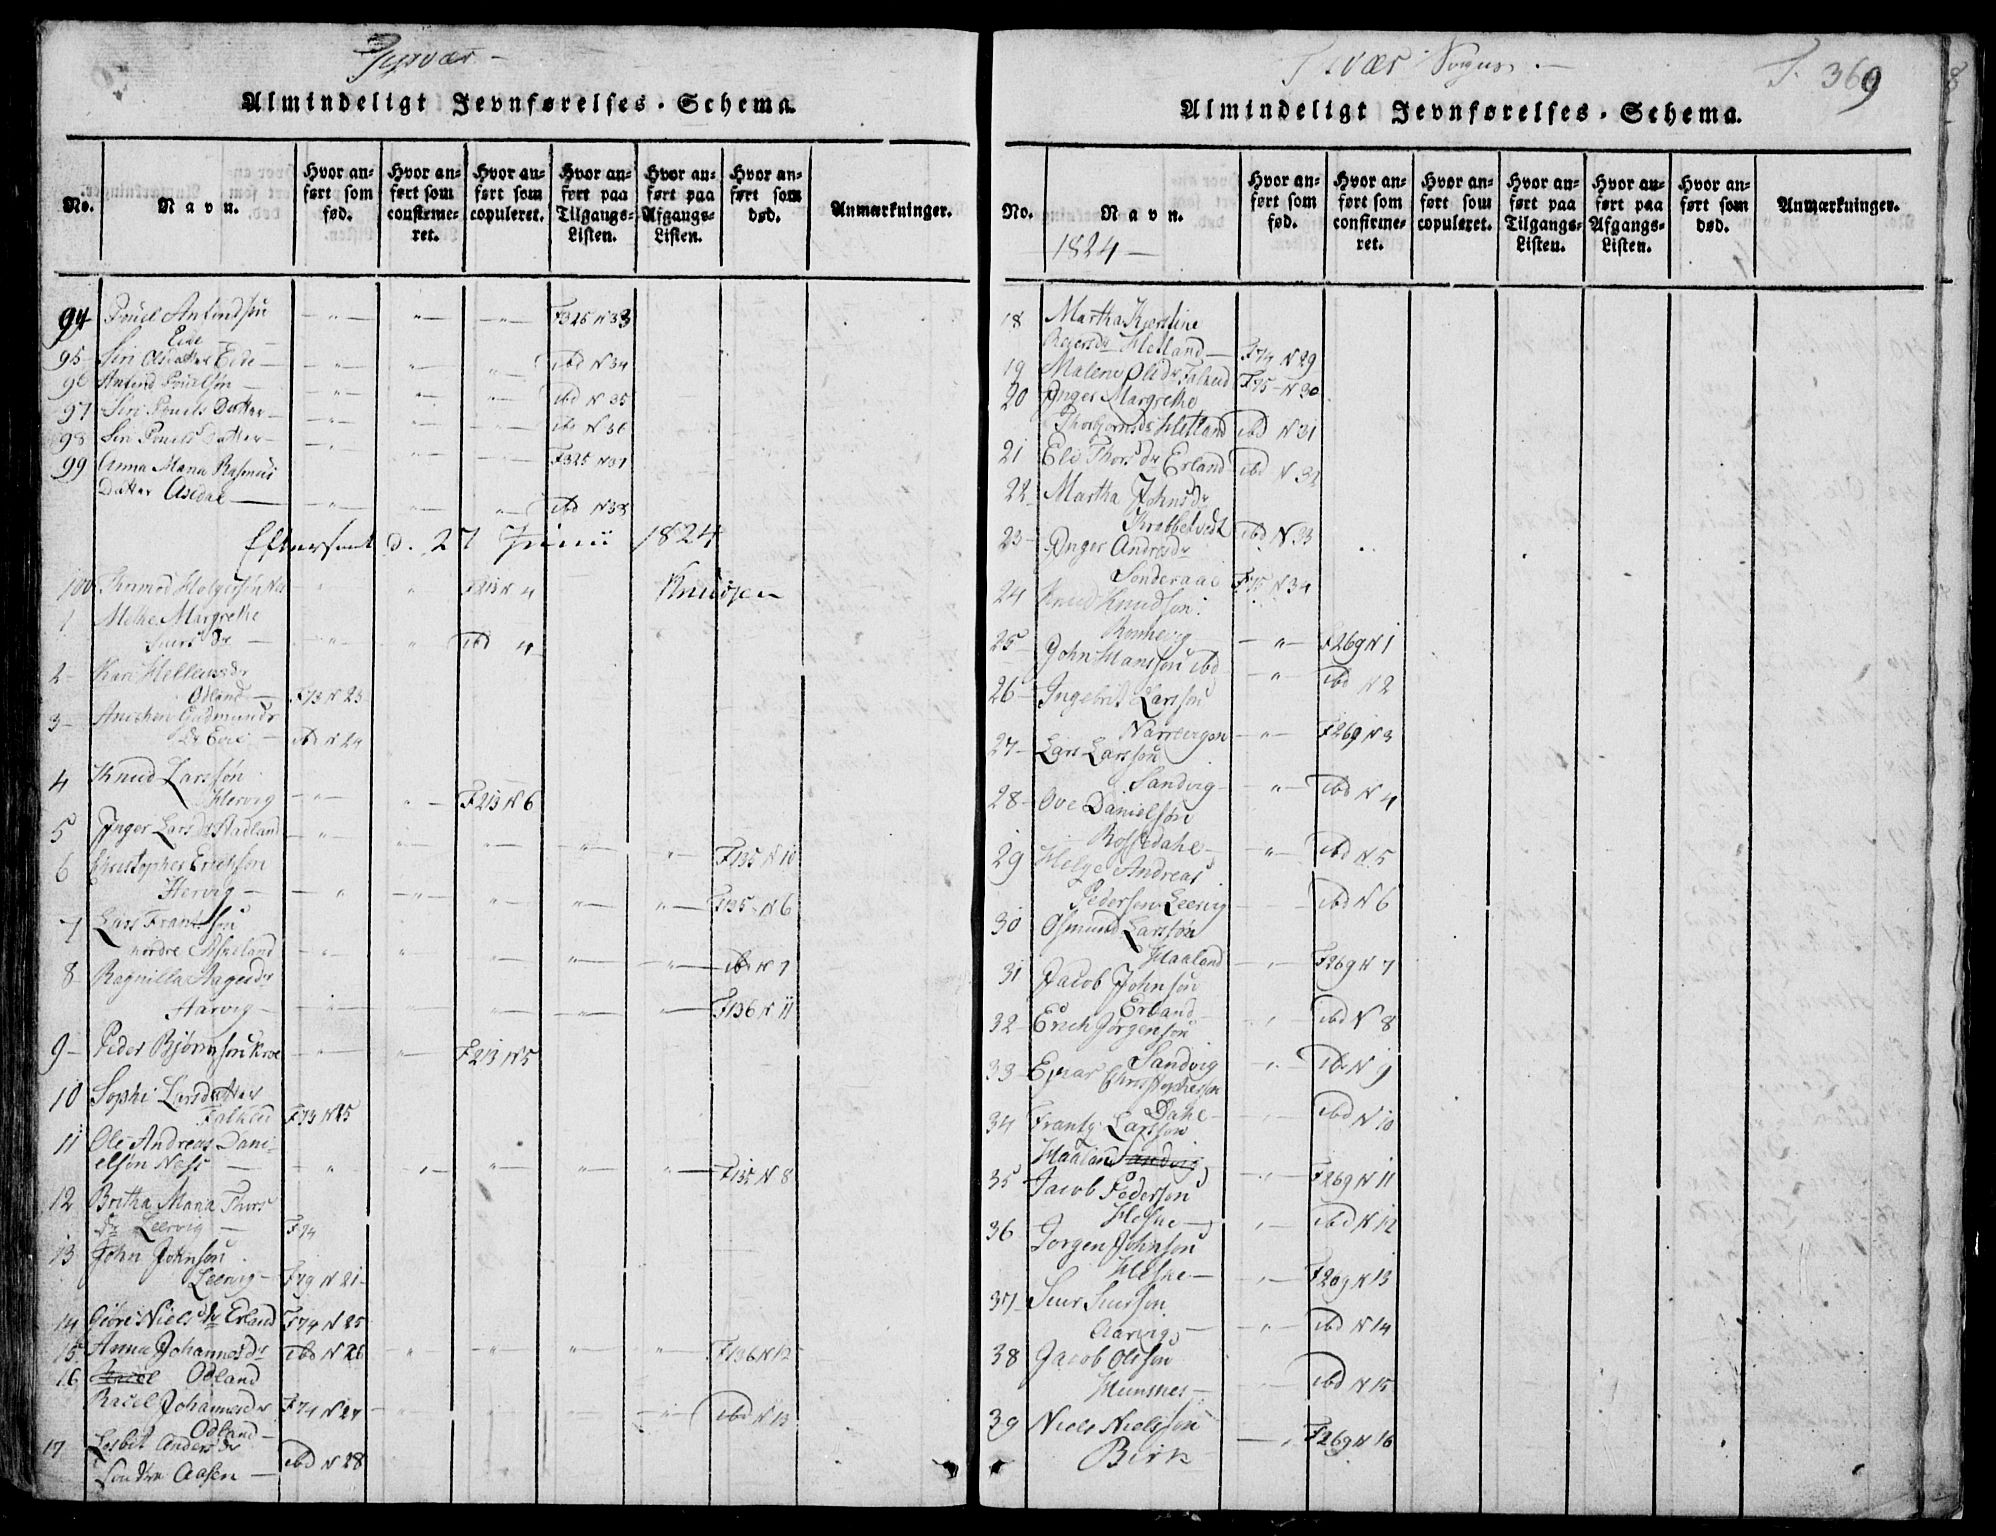 Tysvær
Almindeligt Jevnførelses-Schema.
No.
Navn.
Hvor anført som fød.
Hvor anført som confirmeret.
Hvor anført som copuleret.
Hvor anført paa Tilgangs-Listen.
Hvor anført paa Afgangs-Listen.
Hvor anført som død.
Anmærkninger.
94 Pouel Anfindsøn F325 N33
Eide
95 Siri Olsdatter Eide ibd N34
96 Anfind Pouelsøn ibd N 35
97 Siri Pouels Datter ibd N 36
98 Siri Pouels Datter F325 N37
99 Anna Maria Rasmus
Datter Asedal ibd N38
Efterseet d. 27 Junii 1824
Knudsen
100 F213 N 4
1 Methe Margrethe
Siurs Dr ibd 4
2 Kari Hellensdr
Odland F73 N 23
3 Anichen Gudmunds
Dr Eeie ibd N 24
4 Knud Larssøn
Hervig F213 N 6
5 Inger Lars Dr Stadland F135 N 10
6 Christopher Erichsøn
Hervig F135 N 6
7 Lars Frantsøn
nordre Askeland ibd N 7
8 Ragnilla Aagesdr
Aarvig F136 N 11
9 Peder Bjørnsøn Kroe F213 N5
10 Sophi Larsdatter
Falkeid F73 N25
11 Ole Andreas Dani-
elsøn Ness F135 N 8
12 Britha Maria Thors
dr Leervig F74
13 John Johnsøn
Leervig F79 N 21
14 Giøri Niels dr Erland F74 N 25
15 Anna Johannesdr ibd N 26 F136 N 12
16 Odland
Racel Johannesdr F74 N 27 ibd N 13
Odland
17 Lisbet Anders dr
Søndre Aasen ibd N 28
Tysvær Sogn
F. 369
Almindeligt Jevnførelses-Schema.
No.
Navn.
1824
Hvor anført som fød.
Hvor anført som confirmeret.
Hvor anført som copuleret.
Hvor anført paa Tilgangs-Listen.
Hvor anført paa Afgangs-Listen.
Hvor anført som død.
Anmærkninger.
18 Martha Kjerstine
Reiersdr Hetland F74 N 29
19 Malene Olsdr Falkeid F75 N 30
20 Inger Margrethe
Thorbjornsdr Hetland ibd N 31
21 Eli Thors dr Erland ibd N 32
22 Martha Johnsdr
Krabbetvedt ibd N 33
23 Inger Andersdr
Sønderaae F75 N 34
24 Knud Knudsøn
Ronhevig F269 N 1
25 John Hanssøn ibd ibd N 2
26 Ingebrit Larssøn
F269 N 3
27 Lars Larssøn
Sandvig ibd N 4
28 Ove Danielsøn
Rossedahl ibd N 5
29 Helge Andreas
Pedersøn Leervig ibd N 6
30 Osmund Larssøn
Haaland F269 N 7
31 Jacob Johnsøn
Erland ibd N 8
32 Erich Jørgensøn
Sandvig ibd N 9
33 Ejnar Christophersøn
Dahl ibd N 10
34 Frantz Larssøn
Haaland Sandvig F269 N 11
35 Jacob Pedersøn
Heske ibd N 12
36 Jørgen Johnsøn
Heske F269 N 13
37 Siur Siursøn
Aarvig ibd N 14
38 Jacob Olssøn
Hunsnes ibd N 15
39 Niels Nielssøn
Birk F269 N 16